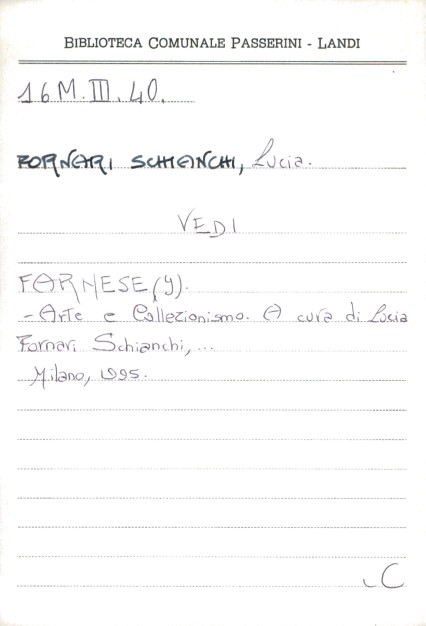 BIBLIOTECA COMUNALE PASSERINI - LANDI
16M.III.40.
FORNARI SCHIANCHI, Lucia.
VEDI
FARNESE (I).
- Arte e Collezionismo. A cura di Lucia
Fornari Schianchi,...
Milano, 1995.
C